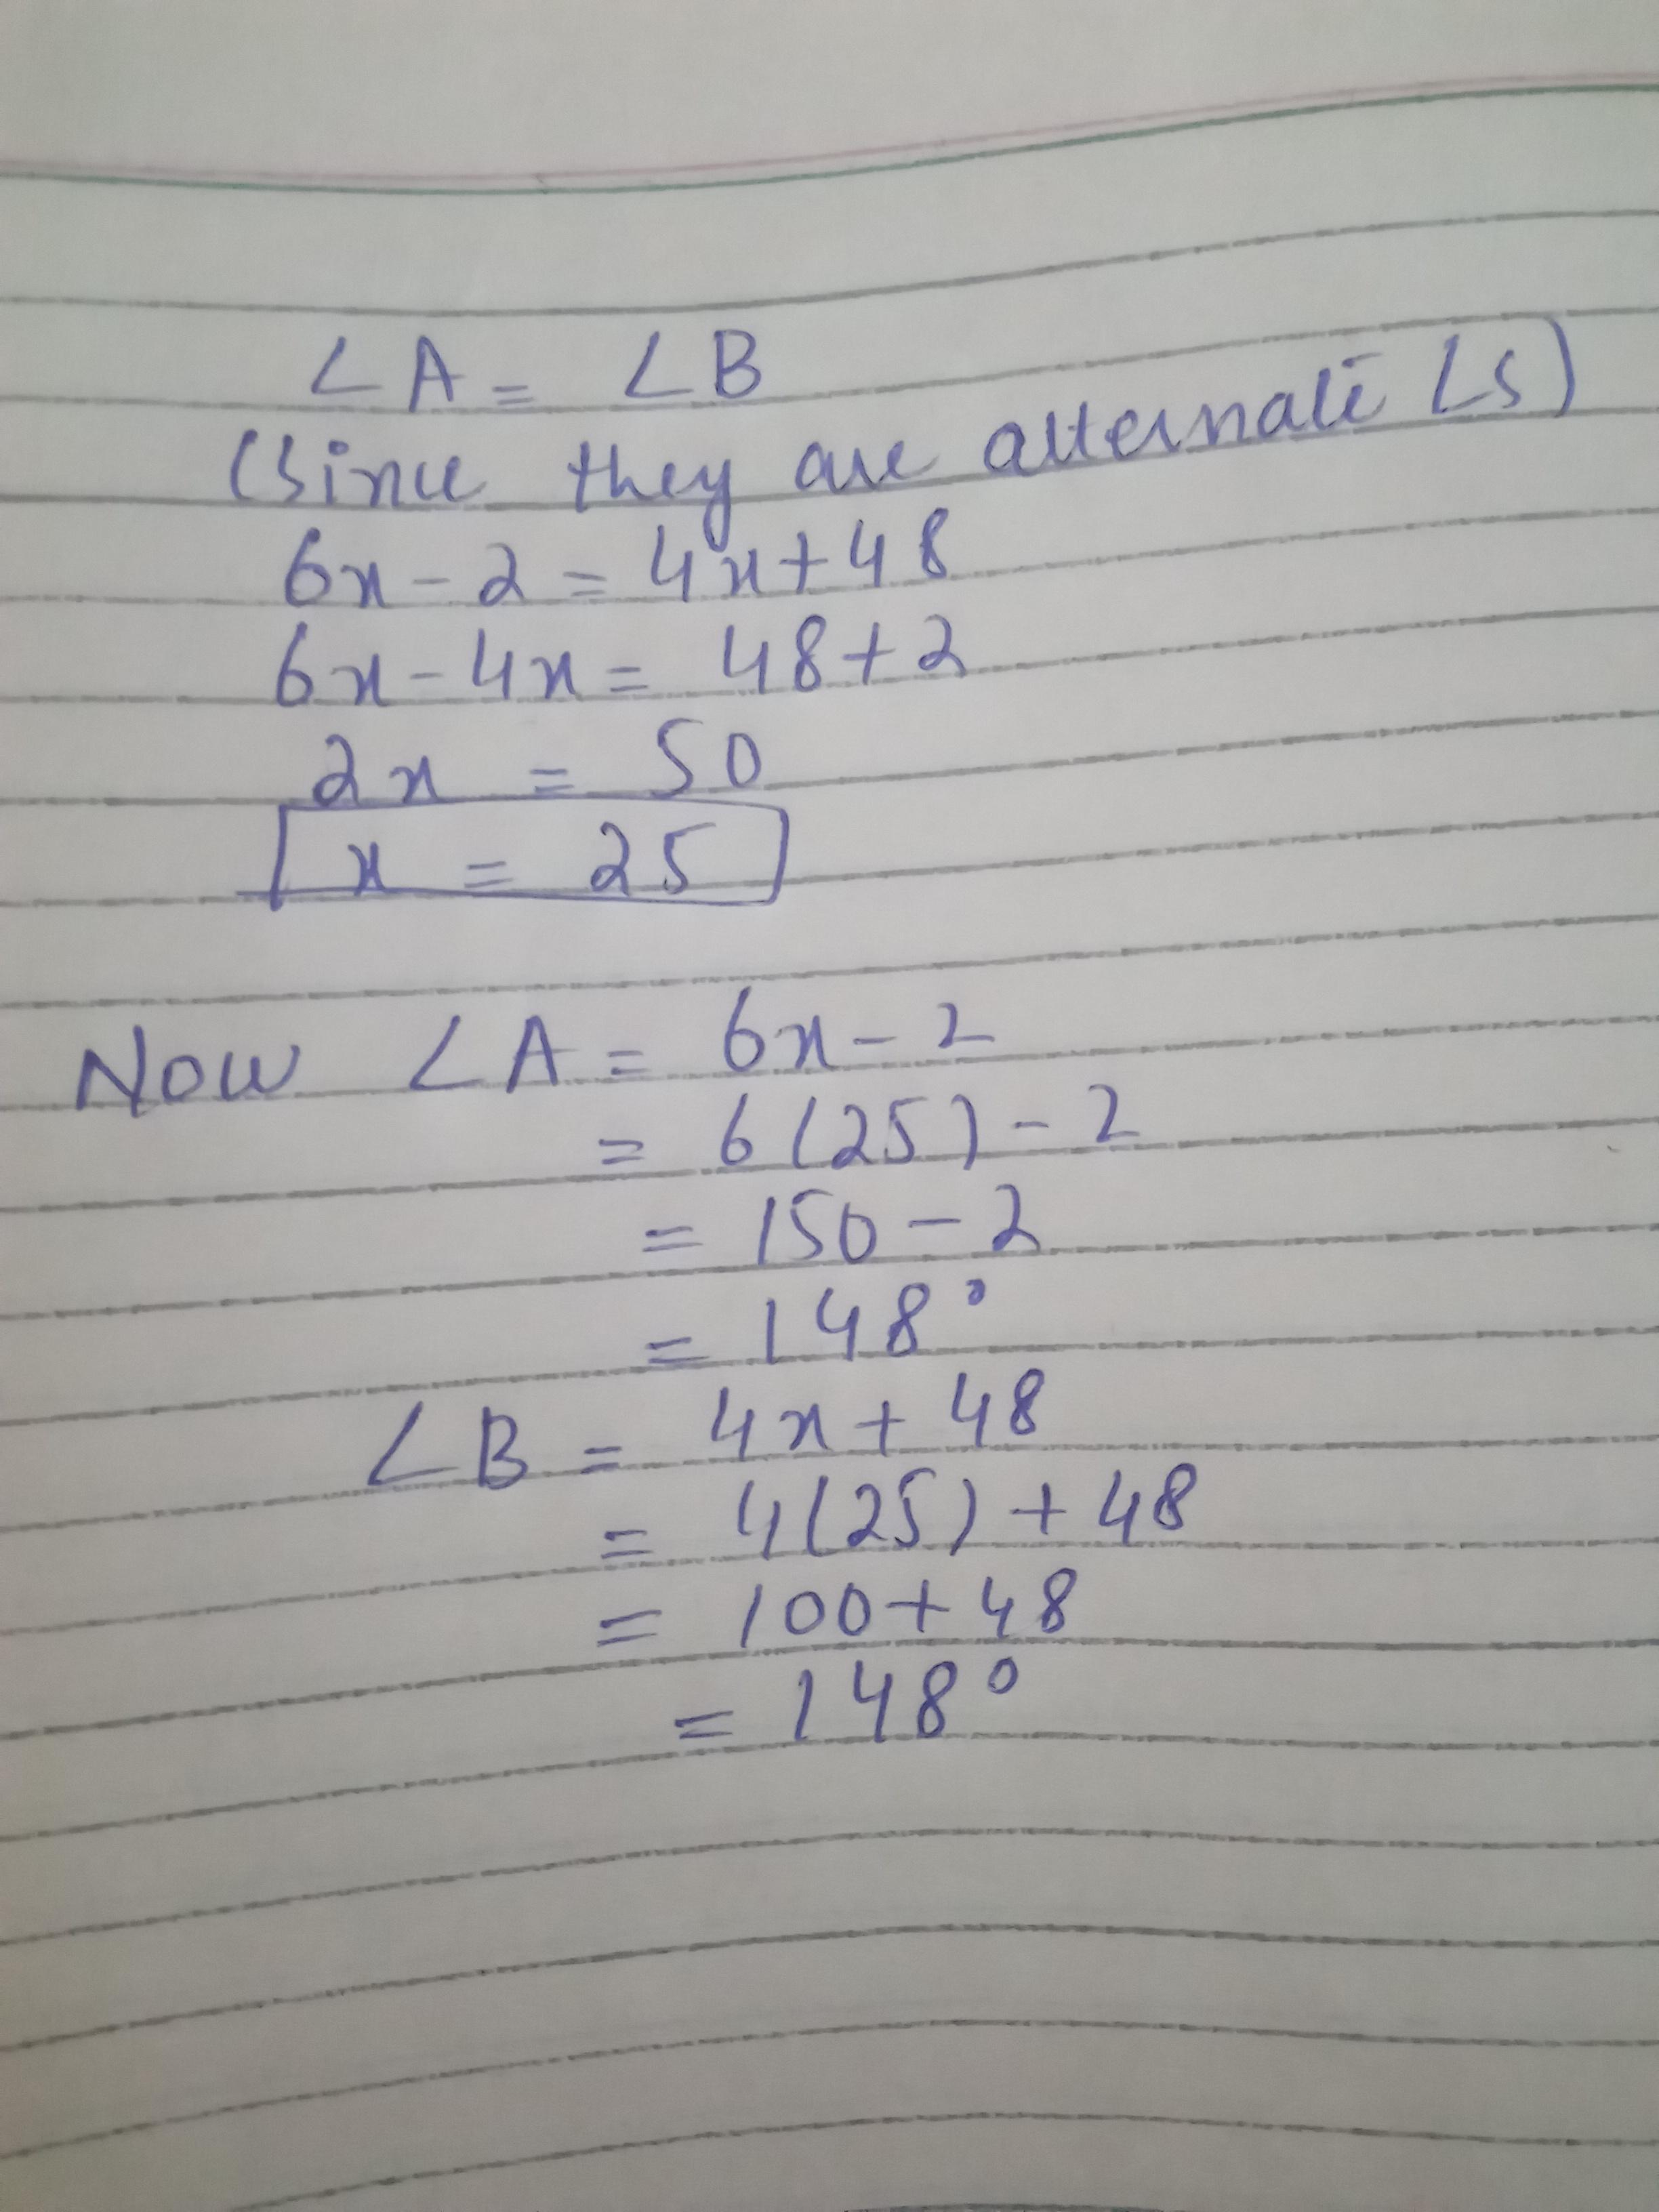 ∠A = ∠B
(Since they are alternate ∠s)
6x - 2 = 4x + 48
6x - 4x = 48 + 2
2x = 50
x = 25
Now ∠A = 6x - 2
= 6(25) - 2
= 150 - 2
= 148°
∠B = 4x + 48
= 4(25) + 48
= 100 + 48
= 148°